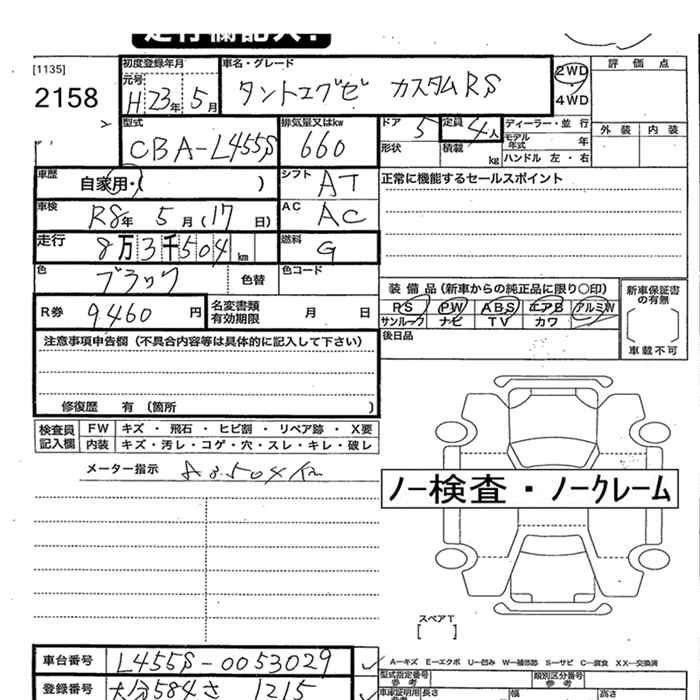 走行欄記入!
[1135]
2158
初度登録年月
元号
H 23年 5月
車名・グレード
タントエグゼ カスタムRS
2WD
・
4WD
評価点
外装 内装
型式
CBA-L455S
排気量又はkw
660
ドア 5
形状
定員 4人
積載 kg
ディーラー・並行
モデル年式 年
ハンドル 左・右
車歴
自家用・( )
シフト AT
正常に機能するセールスポイント
車検
R8年 5月(17日)
AC AC
走行
8万3千504km
燃料 G
色
ブラック
色替
色コード
R券 9,460円
名変書類有効期限 月 日
装備品(新車からの純正品に限り○印)
PS PW ABS エアB アルミW
サンルーフ ナビ TV カワ
後日品
新車保証書の有無
車載不可
注意事項申告欄(不具合内容等は具体的に記入して下さい)
修復歴 有(箇所 )
検査員記入欄
FW キズ・飛石・ヒビ割・リペア跡・X要
内装 キズ・汚レ・コゲ・穴・スレ・キレ・破レ
メーター指示
ノー検査・ノークレーム
スペアT
[ ]
A−キズ E−エクボ U−凹み W−補修跡 S−サビ C−腐食 XX−交換済
車台番号 L455S-0053029
登録番号 大分584さ 1215
型式指定番号
参考
類別区分番号
参考
車庫証明用
長さ
幅
高さ